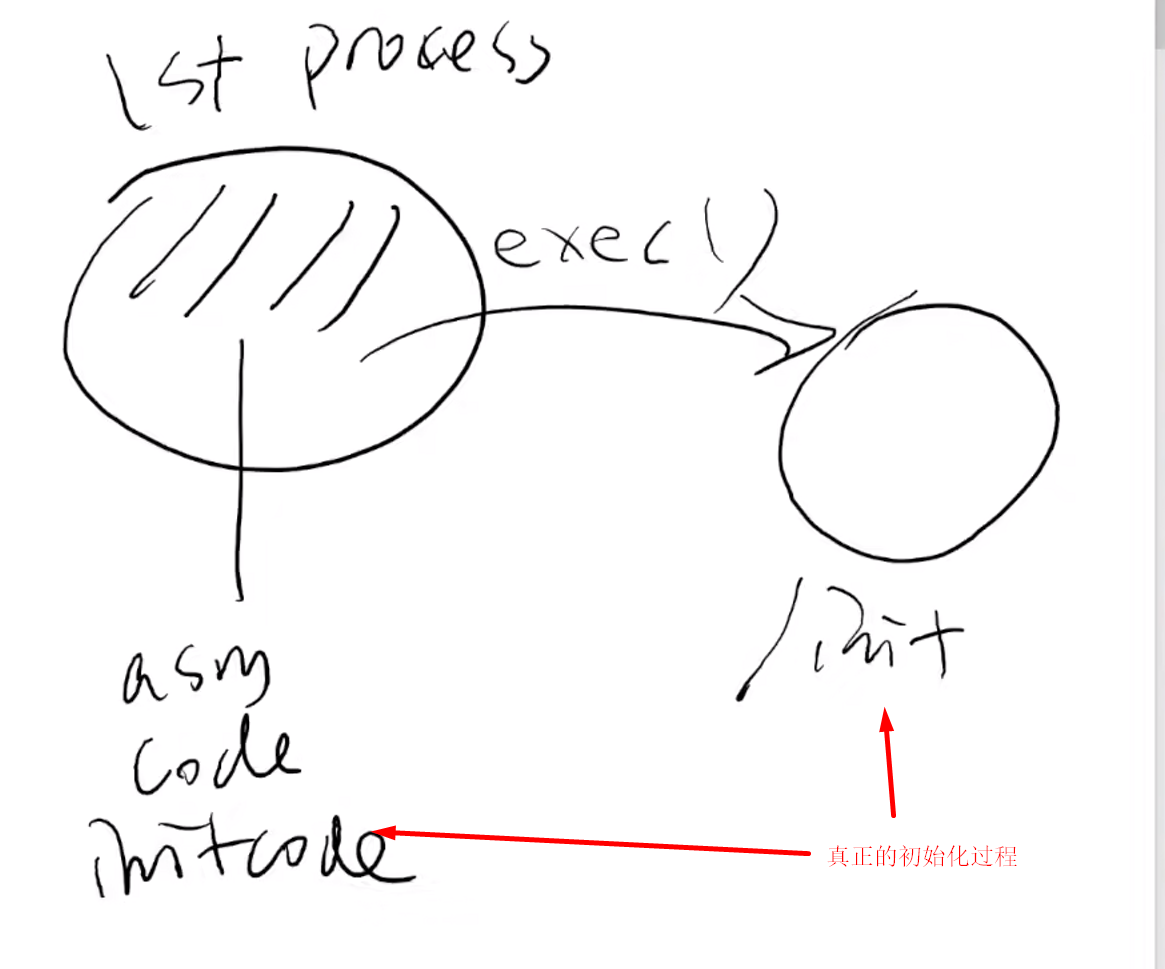 1st process
exec()
/init
asm
code
initcode
真正的初始化过程